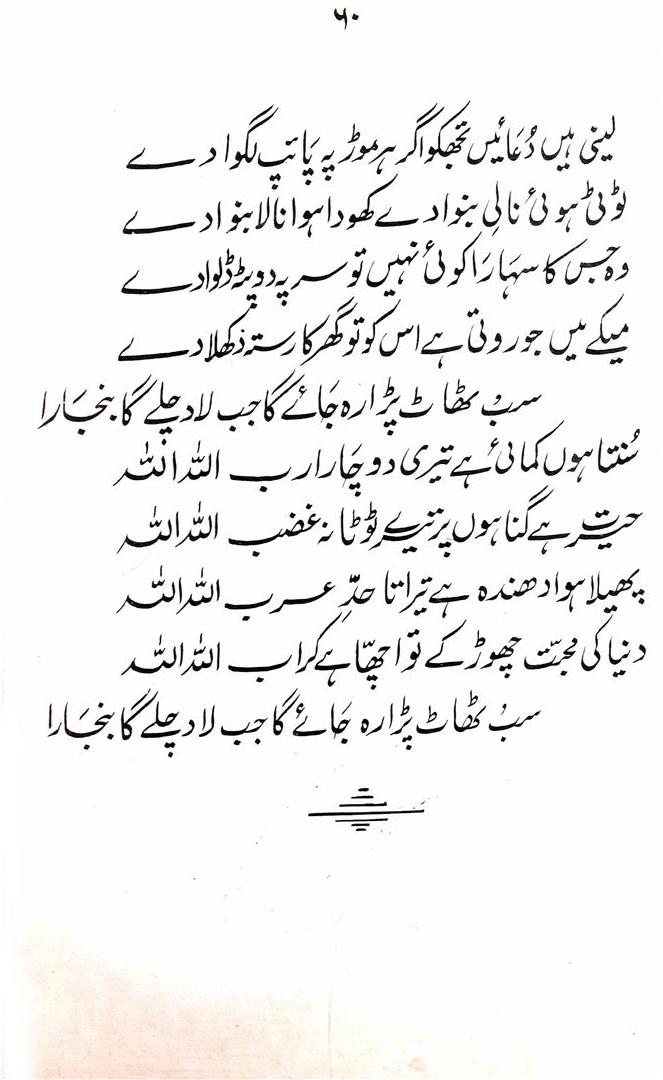 ۶۰
لینی ہیں دُعَائیں تجھکو اگر ہر موڑ پہ پَائپ لگوا دے
ٹوٹی ہوئی نالی بنوا دے کھودا ہوا نالا بنوا دے
وہ جس کا سہارَا کوئی نہیں تو سر پہ دوپٹہ ڈلوا دے
میکے میں جو روتی ہے اس کو تو گھر کا رستہ دکھلا دے
سب ٹھاٹ پڑا رہ جَائے گا جب لاد چلے گا بنجَارا
سُنتا ہوں کمائی ہے تیری دو چَار ارب اللہ اللہ
حیرت ہے گناہوں پر تیرے ٹوٹا نہ غضب اللہ اللہ
پھیلا ہوا دھندہ ہے ترا تا حدِّ عرب اللہ اللہ
دنیا کی محبّت چھوڑ کے تو اچھّا ہے کر اب اللہ اللہ
سب ٹھاٹ پڑا رہ جَائے گا جب لاد چلے گا بنجَارا